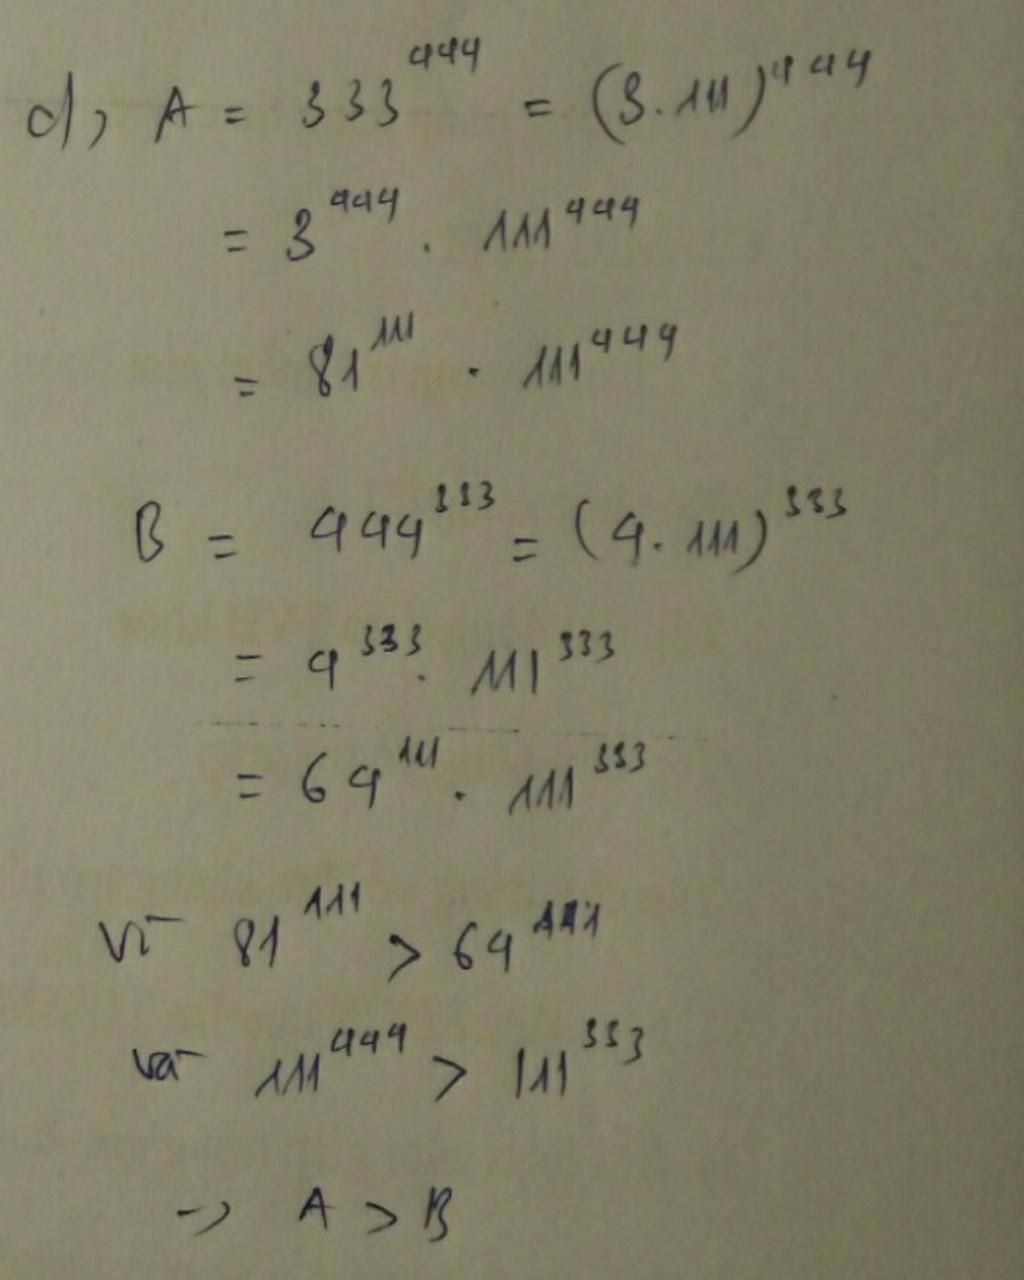 d, A = 333^444 = (3.111)^444
= 3^444 . 111^444
= 81^111 . 111^444
B = 444^333 = (4.111)^333
= 4^333 . 111^333
= 64^111 . 111^333
Vì 81^111 > 64^111
và 111^444 > 111^333
-> A > B